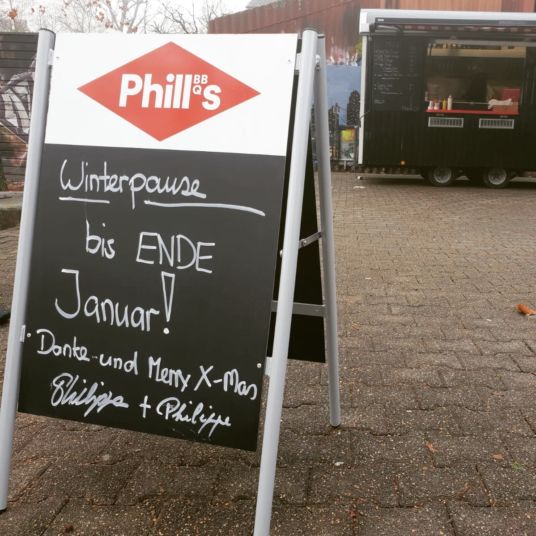 Phill's BBQ
Winterpause
bis ENDE
Januar!
Danke und Merry X-Mas
+ Philippe